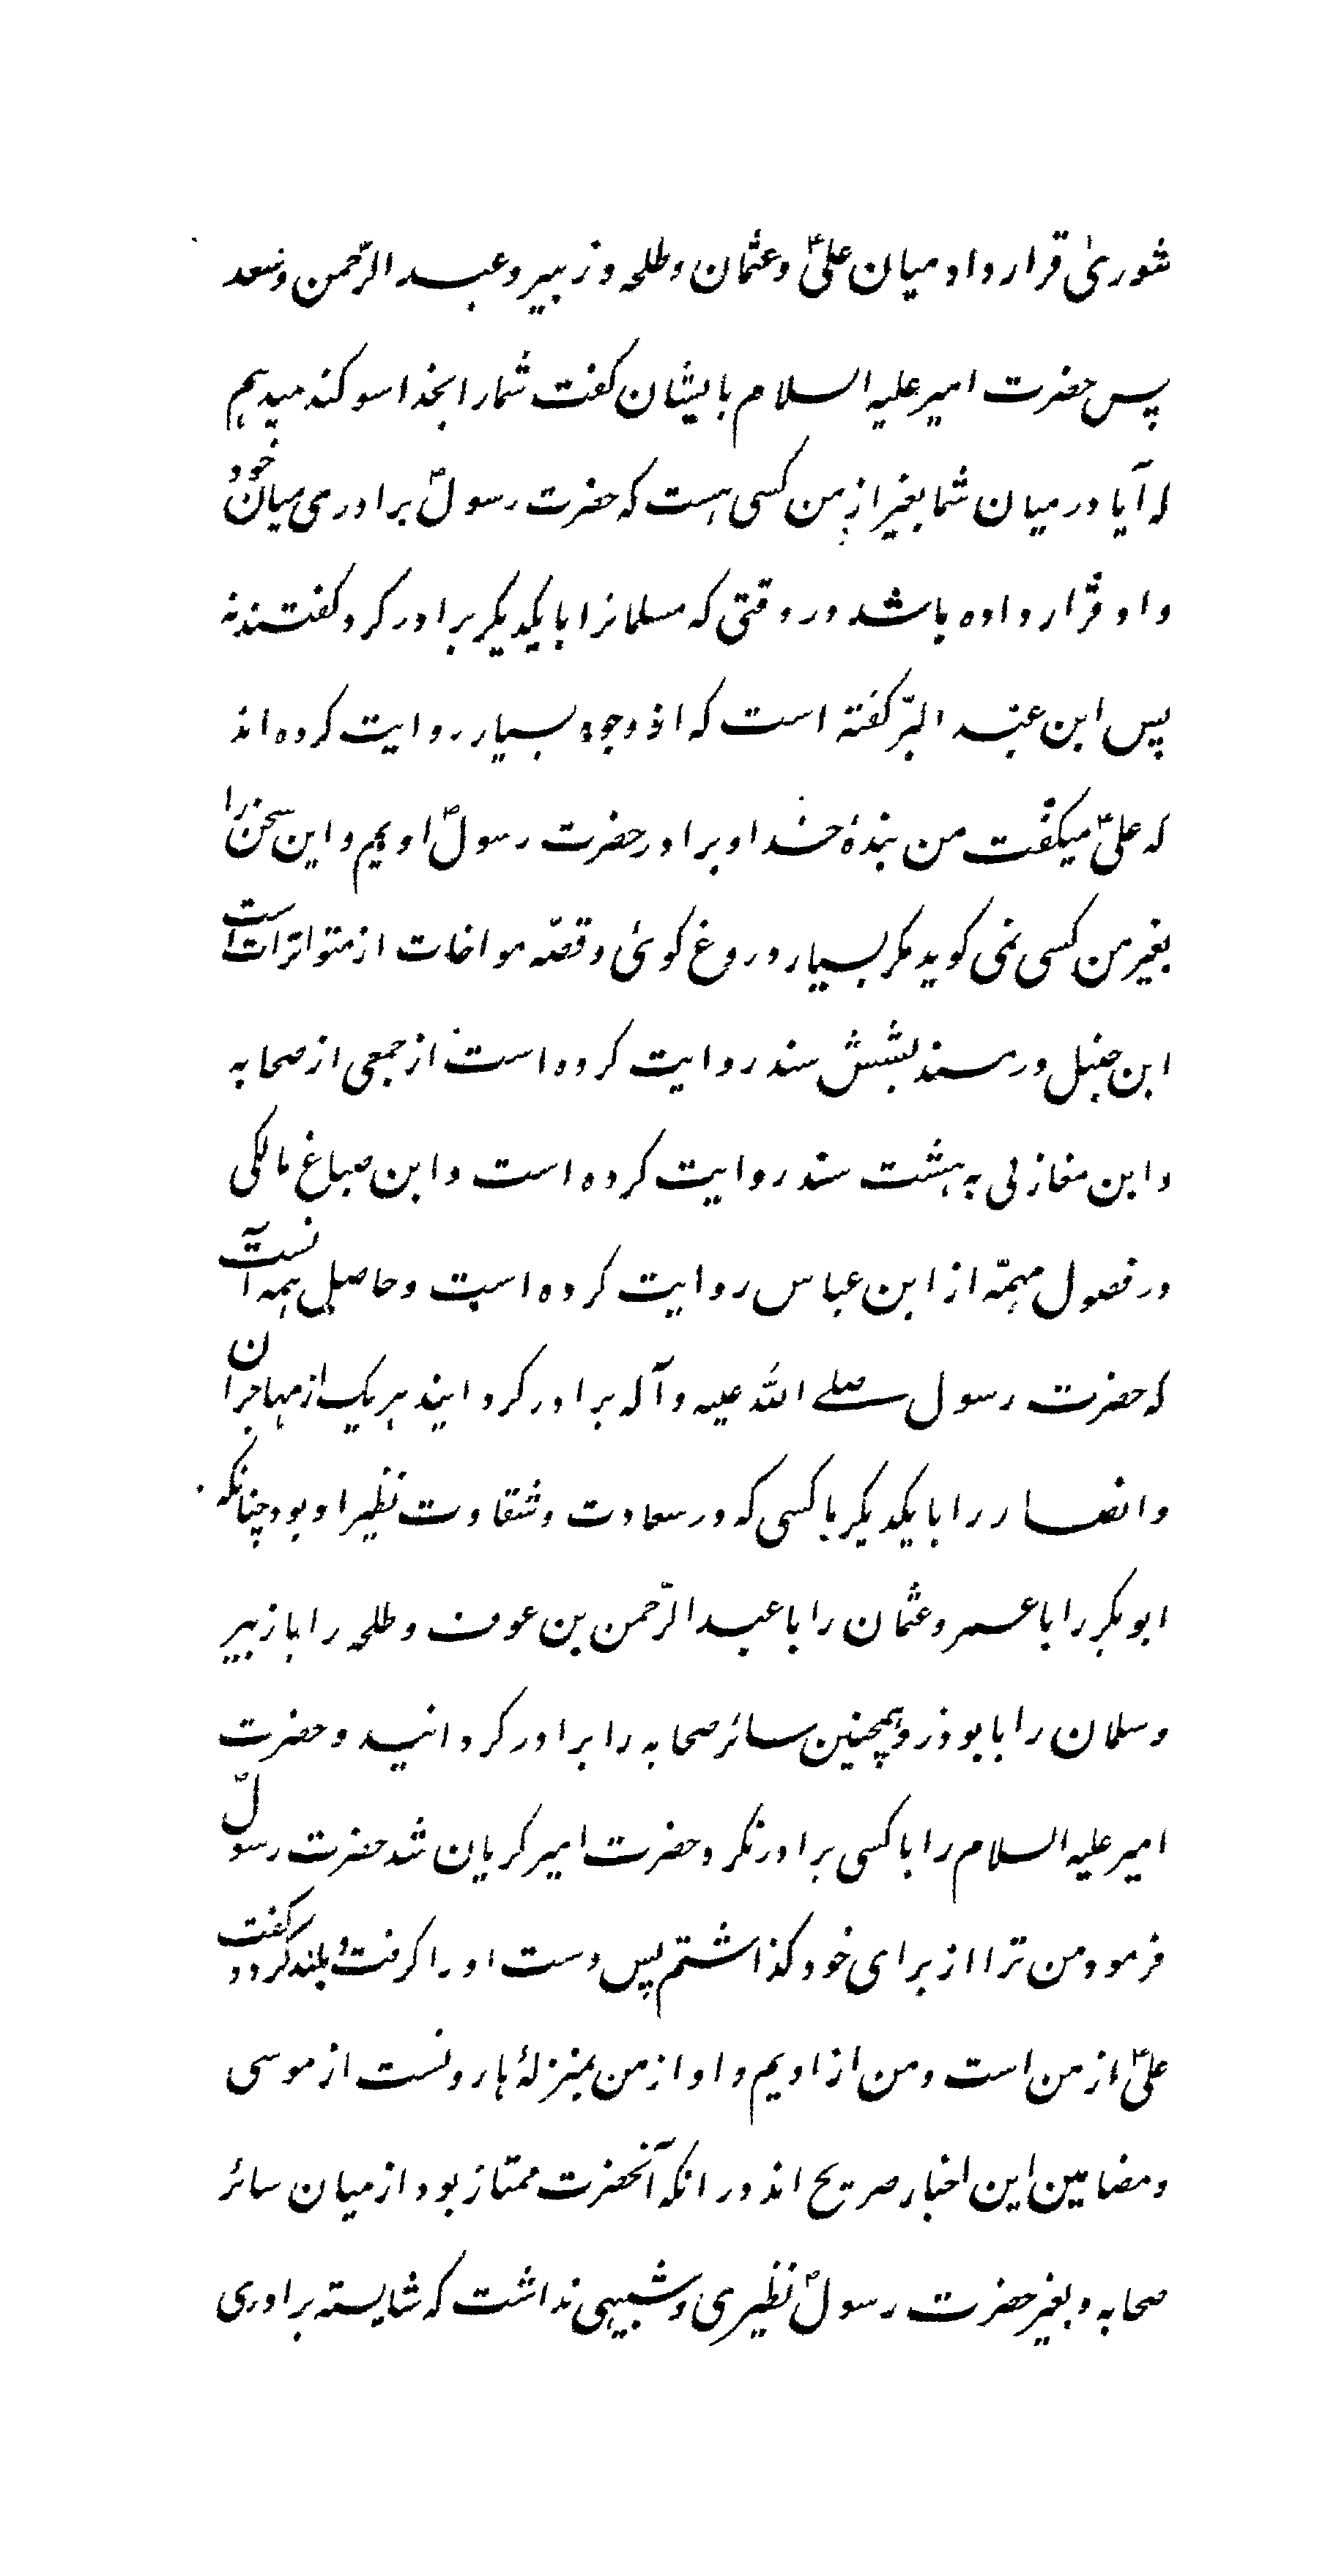 شوریٰ قرار داد میان علیؑ و عثمان و طلحه و زبیر و عبد الرّحمن و سعد
پس حضرت امیر علیه السلام بایشان کفت شمارا بخدا سوکند میدهم
که آیا در میان شما بغیر از من کسی هست که حضرت رسولؐ برادری میان خود
و او قرار داده باشد در وقتی که مسلمانرا با یکدیکر برادر کرد کفتند نه
پس ابن عبد البرّ کفته است که از وجوه بسیار روایت کرده اند
که علیؑ میکفت من بندهٔ خدا و برادر حضرت رسولؐ اویم و این سخن را
بغیر من کسی نمی کوید مکر بسیار دروغ کوئی و قصّه مواخات از متواترات است
ابن حنبل در مسند بشش سند روایت کرده است از جمعی از صحابه
و ابن مغازلی به هشت سند روایت کرده است و ابن صباغ مالکی
در فصول مهمّه از ابن عباس روایت کرده است و حاصل همه آنست
که حضرت رسول صلے الله علیه و آله برادر کردانید هریک از مهاجران
و انصار را با یکدیکر با کسی که در سعادت و شقاوت نظیر او بود چنانکه
ابوبکر را با عمر و عثمان را با عبد الرّحمن بن عوف و طلحه را با زبیر
و سلمان را با بوذر و همچنین سائر صحابه را برادر کردانید و حضرت
امیر علیه السلام را با کسی برادر نکرد حضرت امیر کریان شد حضرت رسولؐ
فرمود من ترا از برای خود کذاشتم پس دست او را کرفت و بلند کرد و کفت
علیؑ از من است و من از اویم و او از من بمنزلهٔ هارونست از موسی
و مضامین این اخبار صریح اند در انکه آنحضرت ممتاز بود از میان سائر
صحابه و بغیر حضرت رسولؐ نظیری و شبیهی نداشت که شایسته برادری